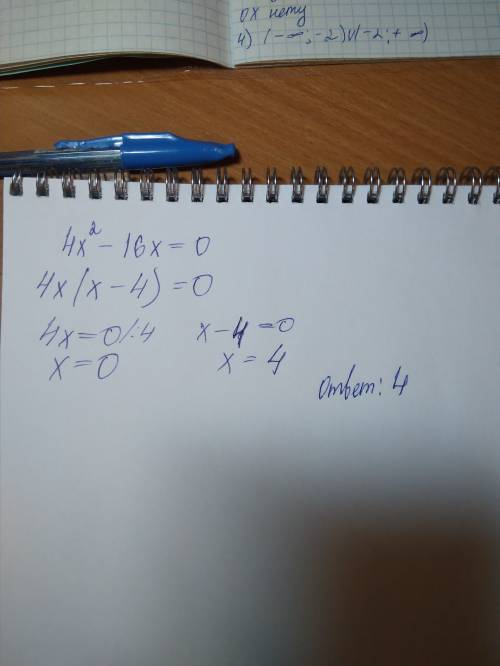 OX нету
4) (-∞; -2)U(-2; +∞)
4x² - 16x = 0
4x(x - 4) = 0
4x = 0 /:4 x - 4 = 0
x = 0 x = 4
Ответ: 4